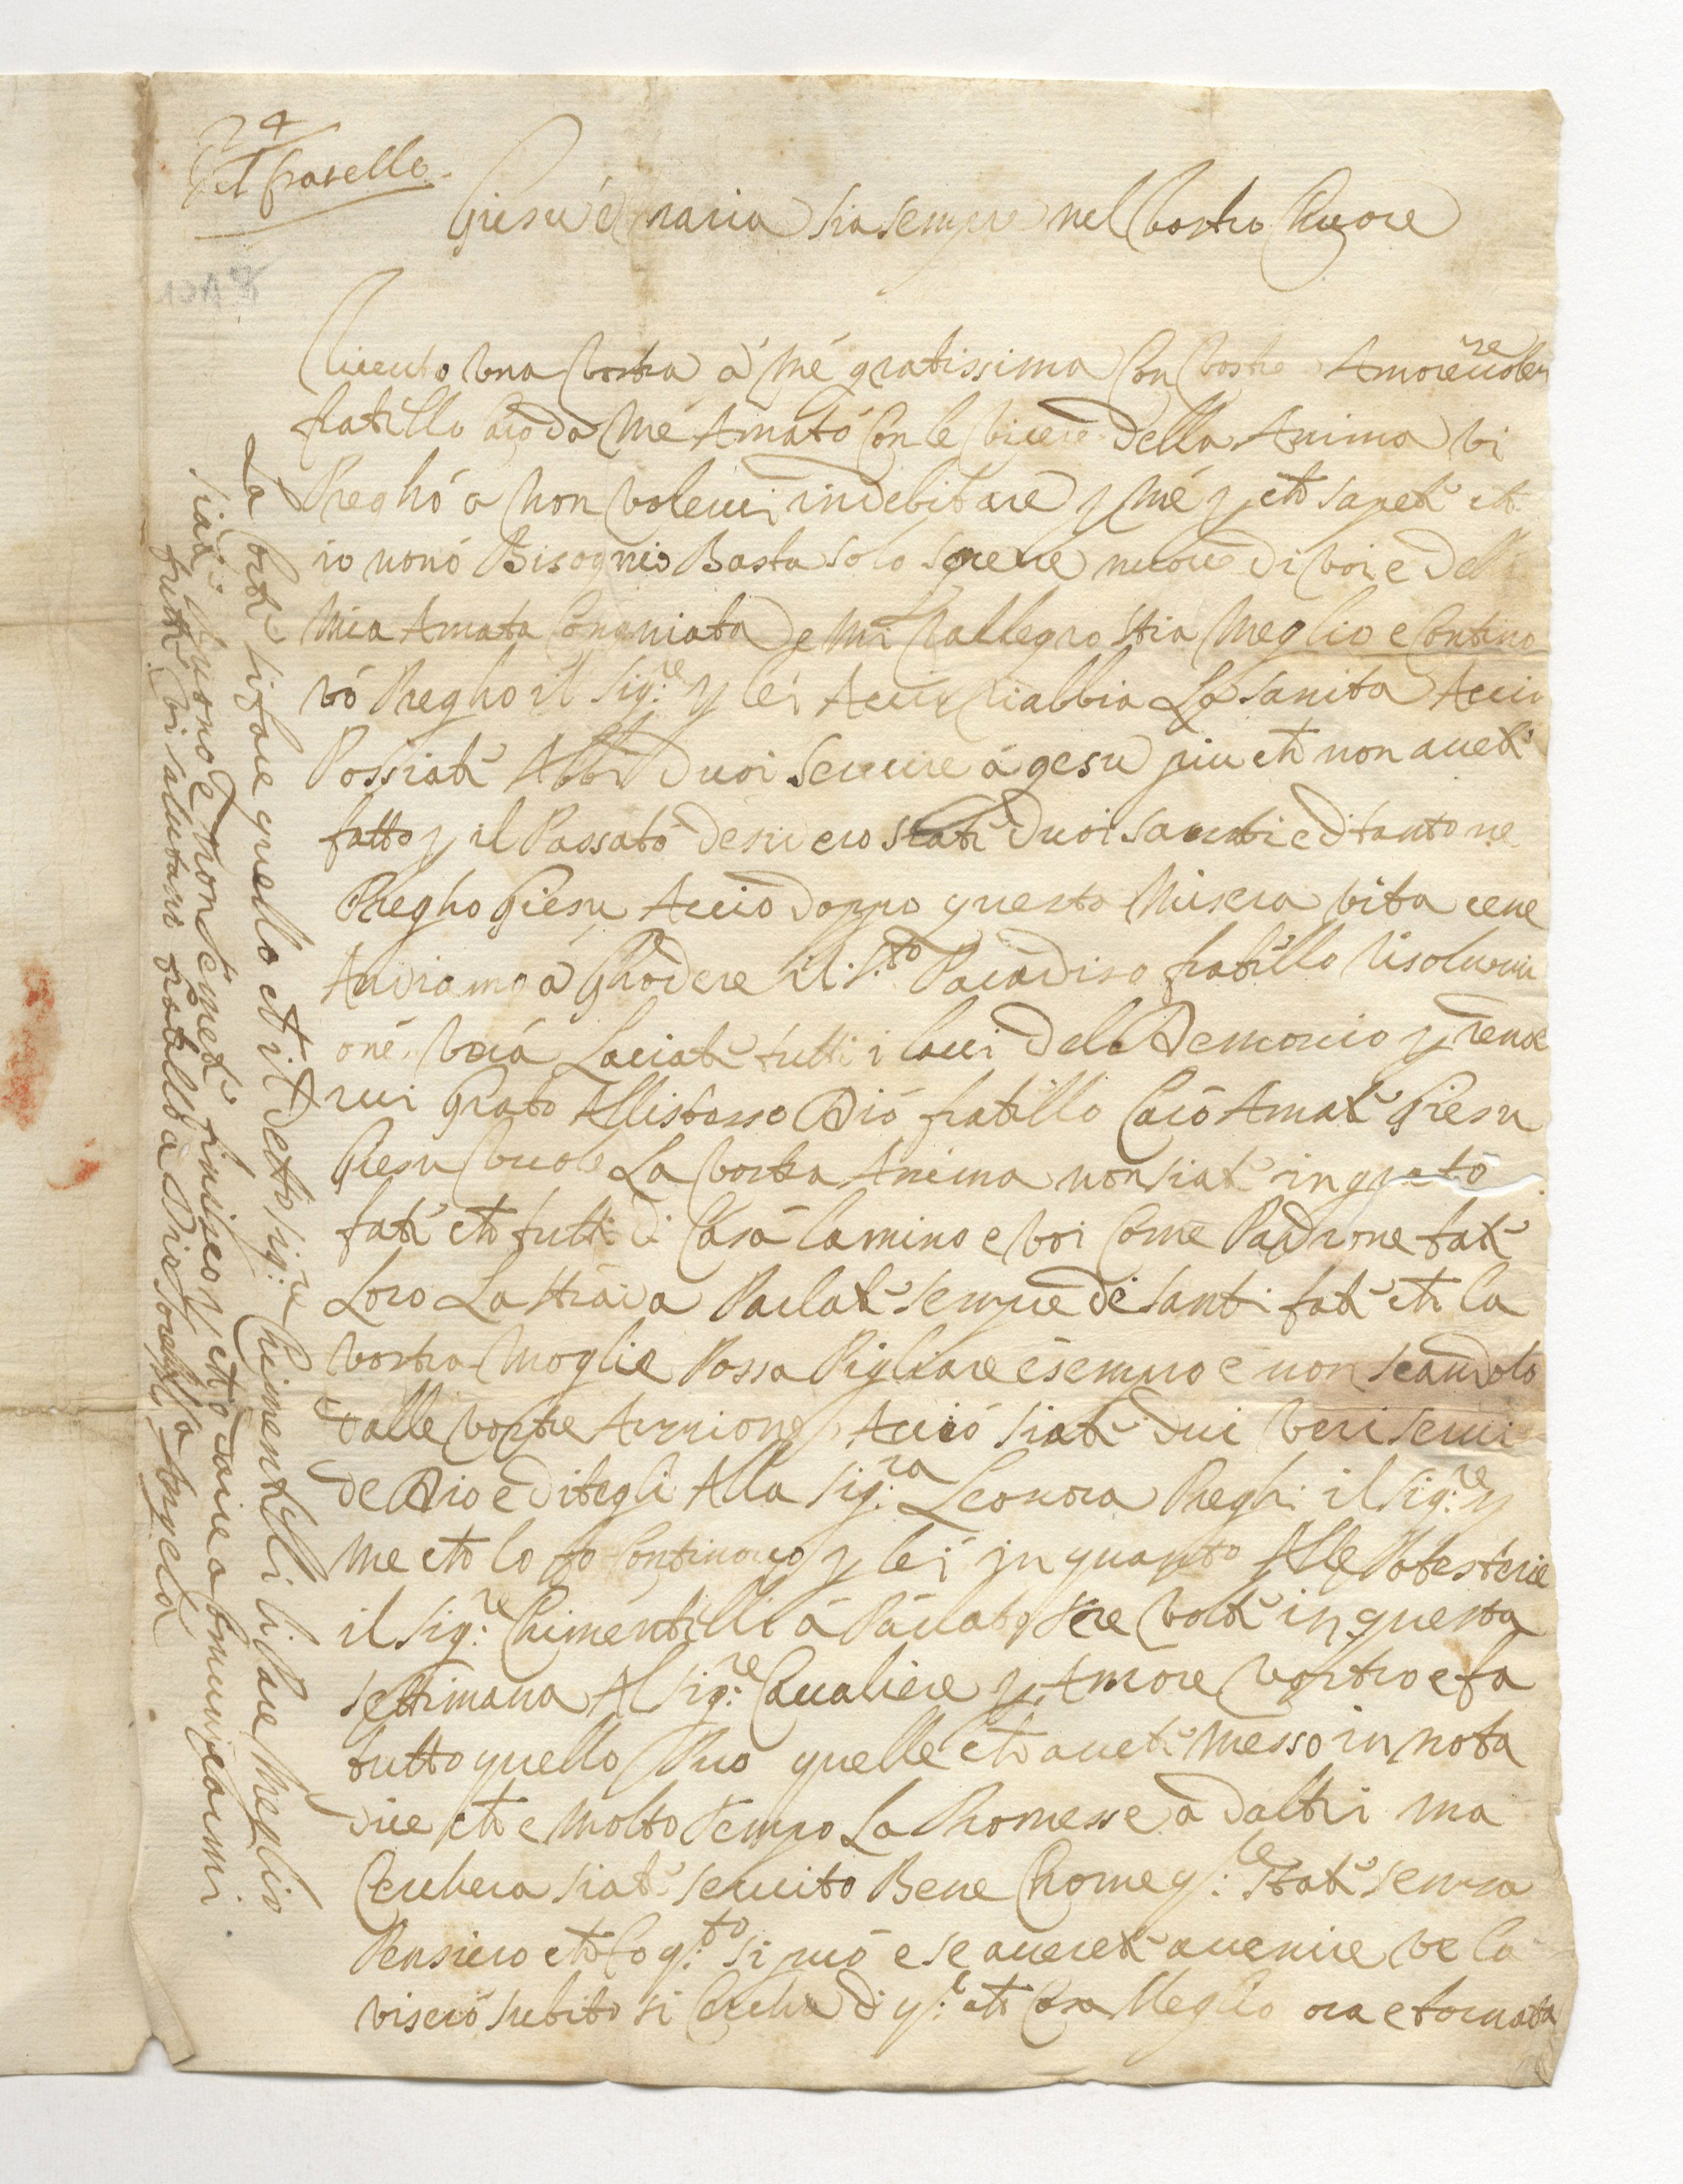 24
Del fratello
Giesu é maria sia sempre nel Vostro Cuore
Riceuto Vna Vostra á mé gratissima Con Vostre Amoreuolez
fratello Caro da mé Amató Con le vicere della Anima vi
Preghó a non voleuui indebitare p mé p che sapete che
io nonó Bisognio Basta solo sapere nuoue di voi e della
Mia Amata Conganiata e mi Rallegro stia Meglio e Contino
vó Pregho il Sig:re p lei Accio riabbia La sanita Accio
Possiate Abbi Duoi seruire á gesu piu che non auete
fatto p il Passató desidero siate Duoi santi ed tanto ne
Pregho Giesu Accio doppo questa Misera vita cene
Andiamo á Ghodere il S:to Paradiso fratello risoluzzi
oné. Vná Laciate tutti i lacci del Demonio p rende
rui Grato Allistesso Dió fratello Caró Amate Giesu
Giesu Vuole La Vostra Anima non siate ingrató
fate che tutti di Casa Camino e Voi Come Padrone fate
Loro La strada Parlate sempre de santi fate che la
Vostra Moglie Possa Pigliare esempro e non scandolo
dalle Vostre Azzione Acció siate Dui veri serui
de Dio e ditegli Alla Sig:ra Leonora Preghi il Sig:re p
me che lo fo Continouo p lei in quanto Alle Potesterie
il Sig:re Chimentelli á Parlato tre Volte in questa
settimana Al Sig:re Caualiere p Amore Vostro e fa
tutto quello Puo quelle che auete Messo in nota
dice che e Molto tempo La Promesse a daltri ma
Cerchera siate seruito Bene Chome q:le state senza
Pensiero che fo q:to si può e se auerete auenire ve la
viseró subito si Cerche di q:l che Cra Meglio ora e tornata
La Vole si fare quello che il detto Sig:re Chimentelli li Pare Meglio
siate Buono e Non temete finisco p che o daire a Comunicarmi
tutte vi salutano fratello a Dio Sorella M:a Angela